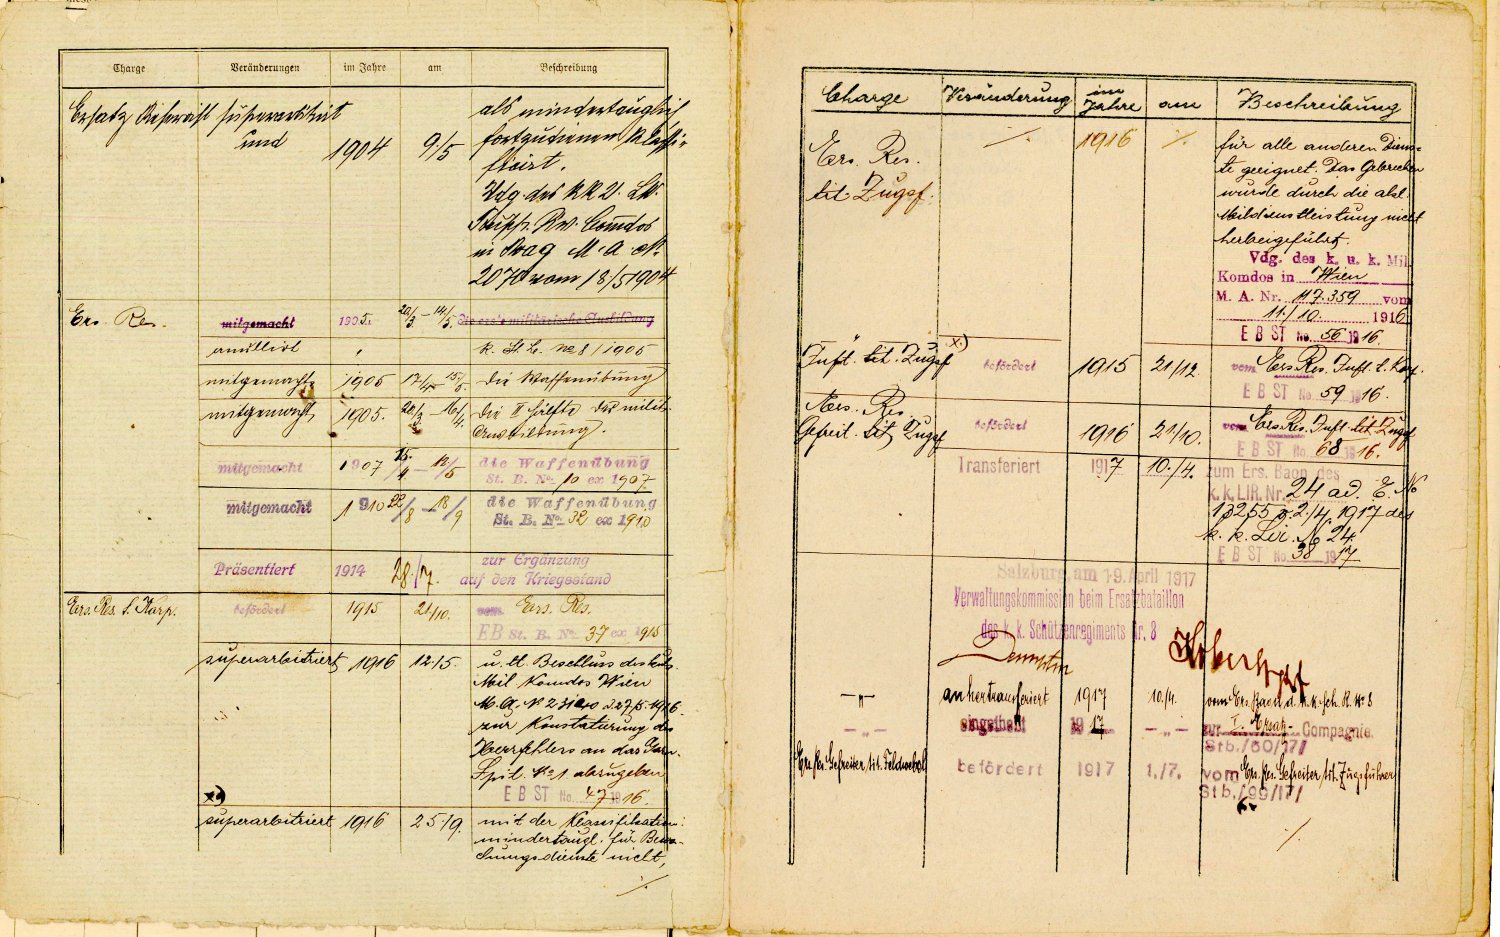 Charge Veränderungen im Jahre am Beschreibung
Ersatz Reservist superarbitrirt
und
1904 9/5
als mindertauglich
fortzudienen klassi-
ficirt.
Vdg des KK
M. A. No
2070 vom 18/5 1904
Ers. Res.
mitgemacht 1905. 20/3 - 14/5. die erste militärische Ausbildung
annullirt " k. St. B. No 8 / 1905
mitgemacht 1905 17/4 - 15/5. die Waffenübung
mitgemacht 1905. 20/3 - 16/4. die II hälfte der milit.
Ausbildung.
mitgemacht 1907 15./4 - 12/5 die Waffenübung
St. B. No. 10 ex 1907.
mitgemacht 1910 22/8 - 18/9 die Waffenübung
St. B. No. 32 ex 1910
Präsentiert 1914 28./7. zur Ergänzung
auf den Kriegsstand
Ers. Res. t. Korp. befördert 1915 21/10. vom Ers. Res.
EB St. B. No. 37 ex 1915
superarbitriert 1916 12./5. u. lt. Beschluss des k.u.k.
Mil. Komdos Wien
M.A. No 23140 v. 27/5. 1916
zur Konstatierung des
Herzfehlers an das Garn.
Spit. No 1 abzugeben
E B ST No. 47 1916.
x)
superarbitriert 1916 25/9. mit der Klassifikation:
mindertaugl. für Bewa-
chungsdienste nicht,
./.
Charge Veränderung im Jahre am Beschreibung
Ers. Res.
tit. Zugsf.
./. 1916 ./.
für alle anderen Diens-
te geeignet. Das Gebrechen
wurde durch die akt.
Mildienstleistung nicht
herbeigeführt.
Vdg. des k. u. k. Mil.
Komdos in Wien
M. A. Nr. 117.359 vom
11./10. 1916
E B ST No. 56 1916.
x)
Inft. tit. Zugsf befördert 1915 21/12 vom Ers. Res. Inft. t. Korp.
E B ST No. 59 1916.
Ers. Res.
Gefreit. tit. Zugsf befördert 1916 21/10. vom Ers. Res. Inft. tit. Zugsf
E B ST No. 68 1916.
Transferiert 1917 10./4. zum Ers. Baon des
k. k. LIR. Nr. 24 ad. E. No
13255 v. 2/4. 1917 des
k. k. LIR. No 24.
E B ST No. 38 1917
Salzburg, am 19. April 1917
Verwaltungskommission beim Ersatzbataillon
des k. k. Schützenregiments Nr. 8
— " — anhertransferiert 1917 10./4. vom Ers. Baon d. k.k. Sch. R. No 8
— " — eingeteilt 1917 — " — zur I. Ersatz- Compagnie.
Stb./60/17/
Ers. Res. Gefreiter tit. Feldwebel befördert 1917 1./7. vom Ers. Res. Gefreiter tit. Zugsführer
Stb./99/17/
./.